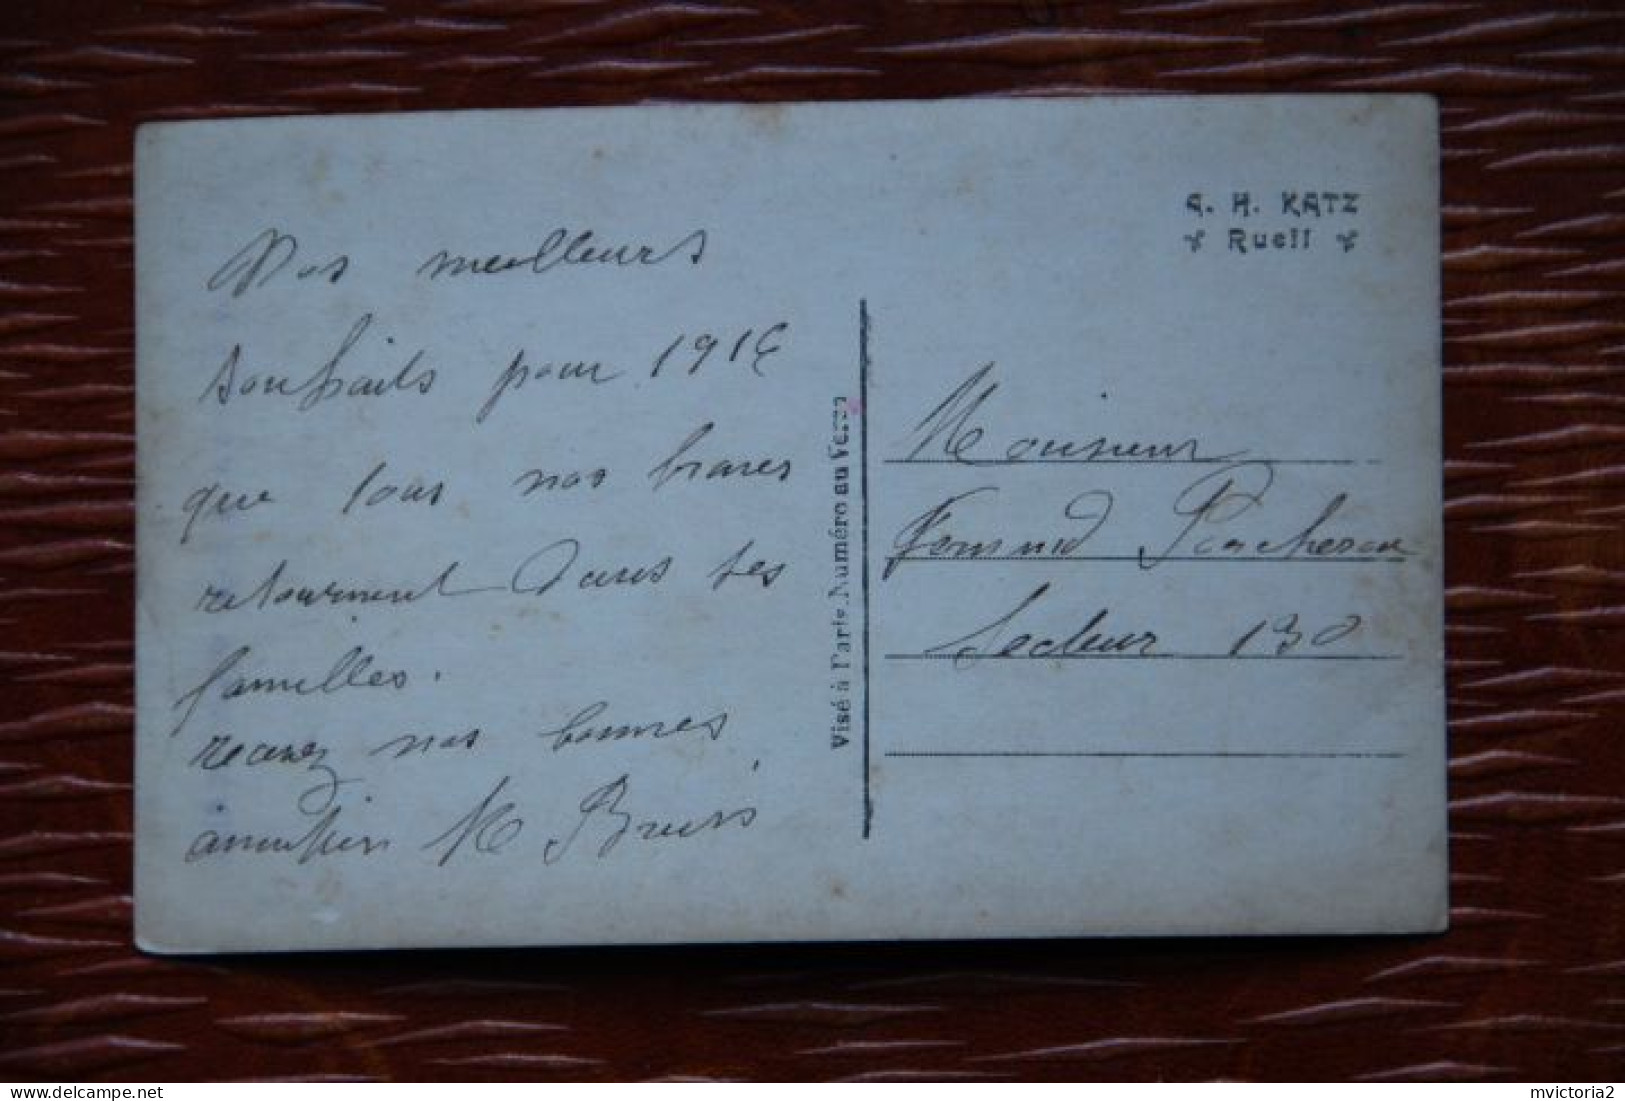 Nos meilleurs
souhaits pour 1916
que tous nos braves
retournent dans ses
familles.
recevez nos bonnes
amitiés
A. H. KATZ
Rueil
Visé à Paris. Numéro au Verso
Monsieur
Fernand Poncheron
Secteur 130
mvictoria2